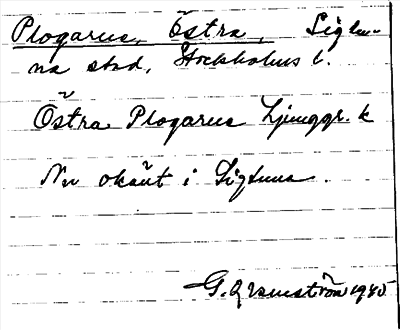 Plogarus, Östra, Sigtu-
na stad, Stockholms l.
Östra Plogarus Ljunggr. k
Nu okänt i Sigtuna.
G. Qvarnström 1940